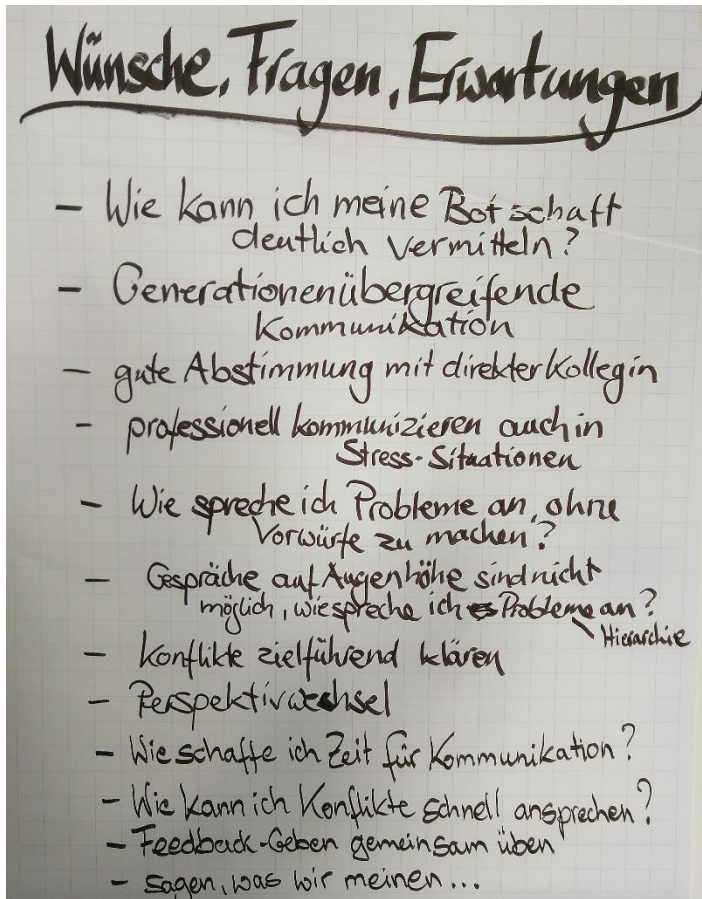 Wünsche, Fragen, Erwartungen
- Wie kann ich meine Botschaft
deutlich vermitteln?
- Generationenübergreifende
Kommunikation
- gute Abstimmung mit direkter Kollegin
- professionell kommunizieren auch in
Stress-Situationen
- Wie spreche ich Probleme an, ohne
Vorwürfe zu machen?
- Gespräche auf Augenhöhe sind nicht
möglich, wie spreche ich Probleme an?
Hierarchie
- Konflikte zielführend klären
- Perspektivwechsel
- Wie schaffe ich Zeit für Kommunikation?
- Wie kann ich Konflikte schnell ansprechen?
- Feedback-Geben gemeinsam üben
- sagen, was wir meinen...